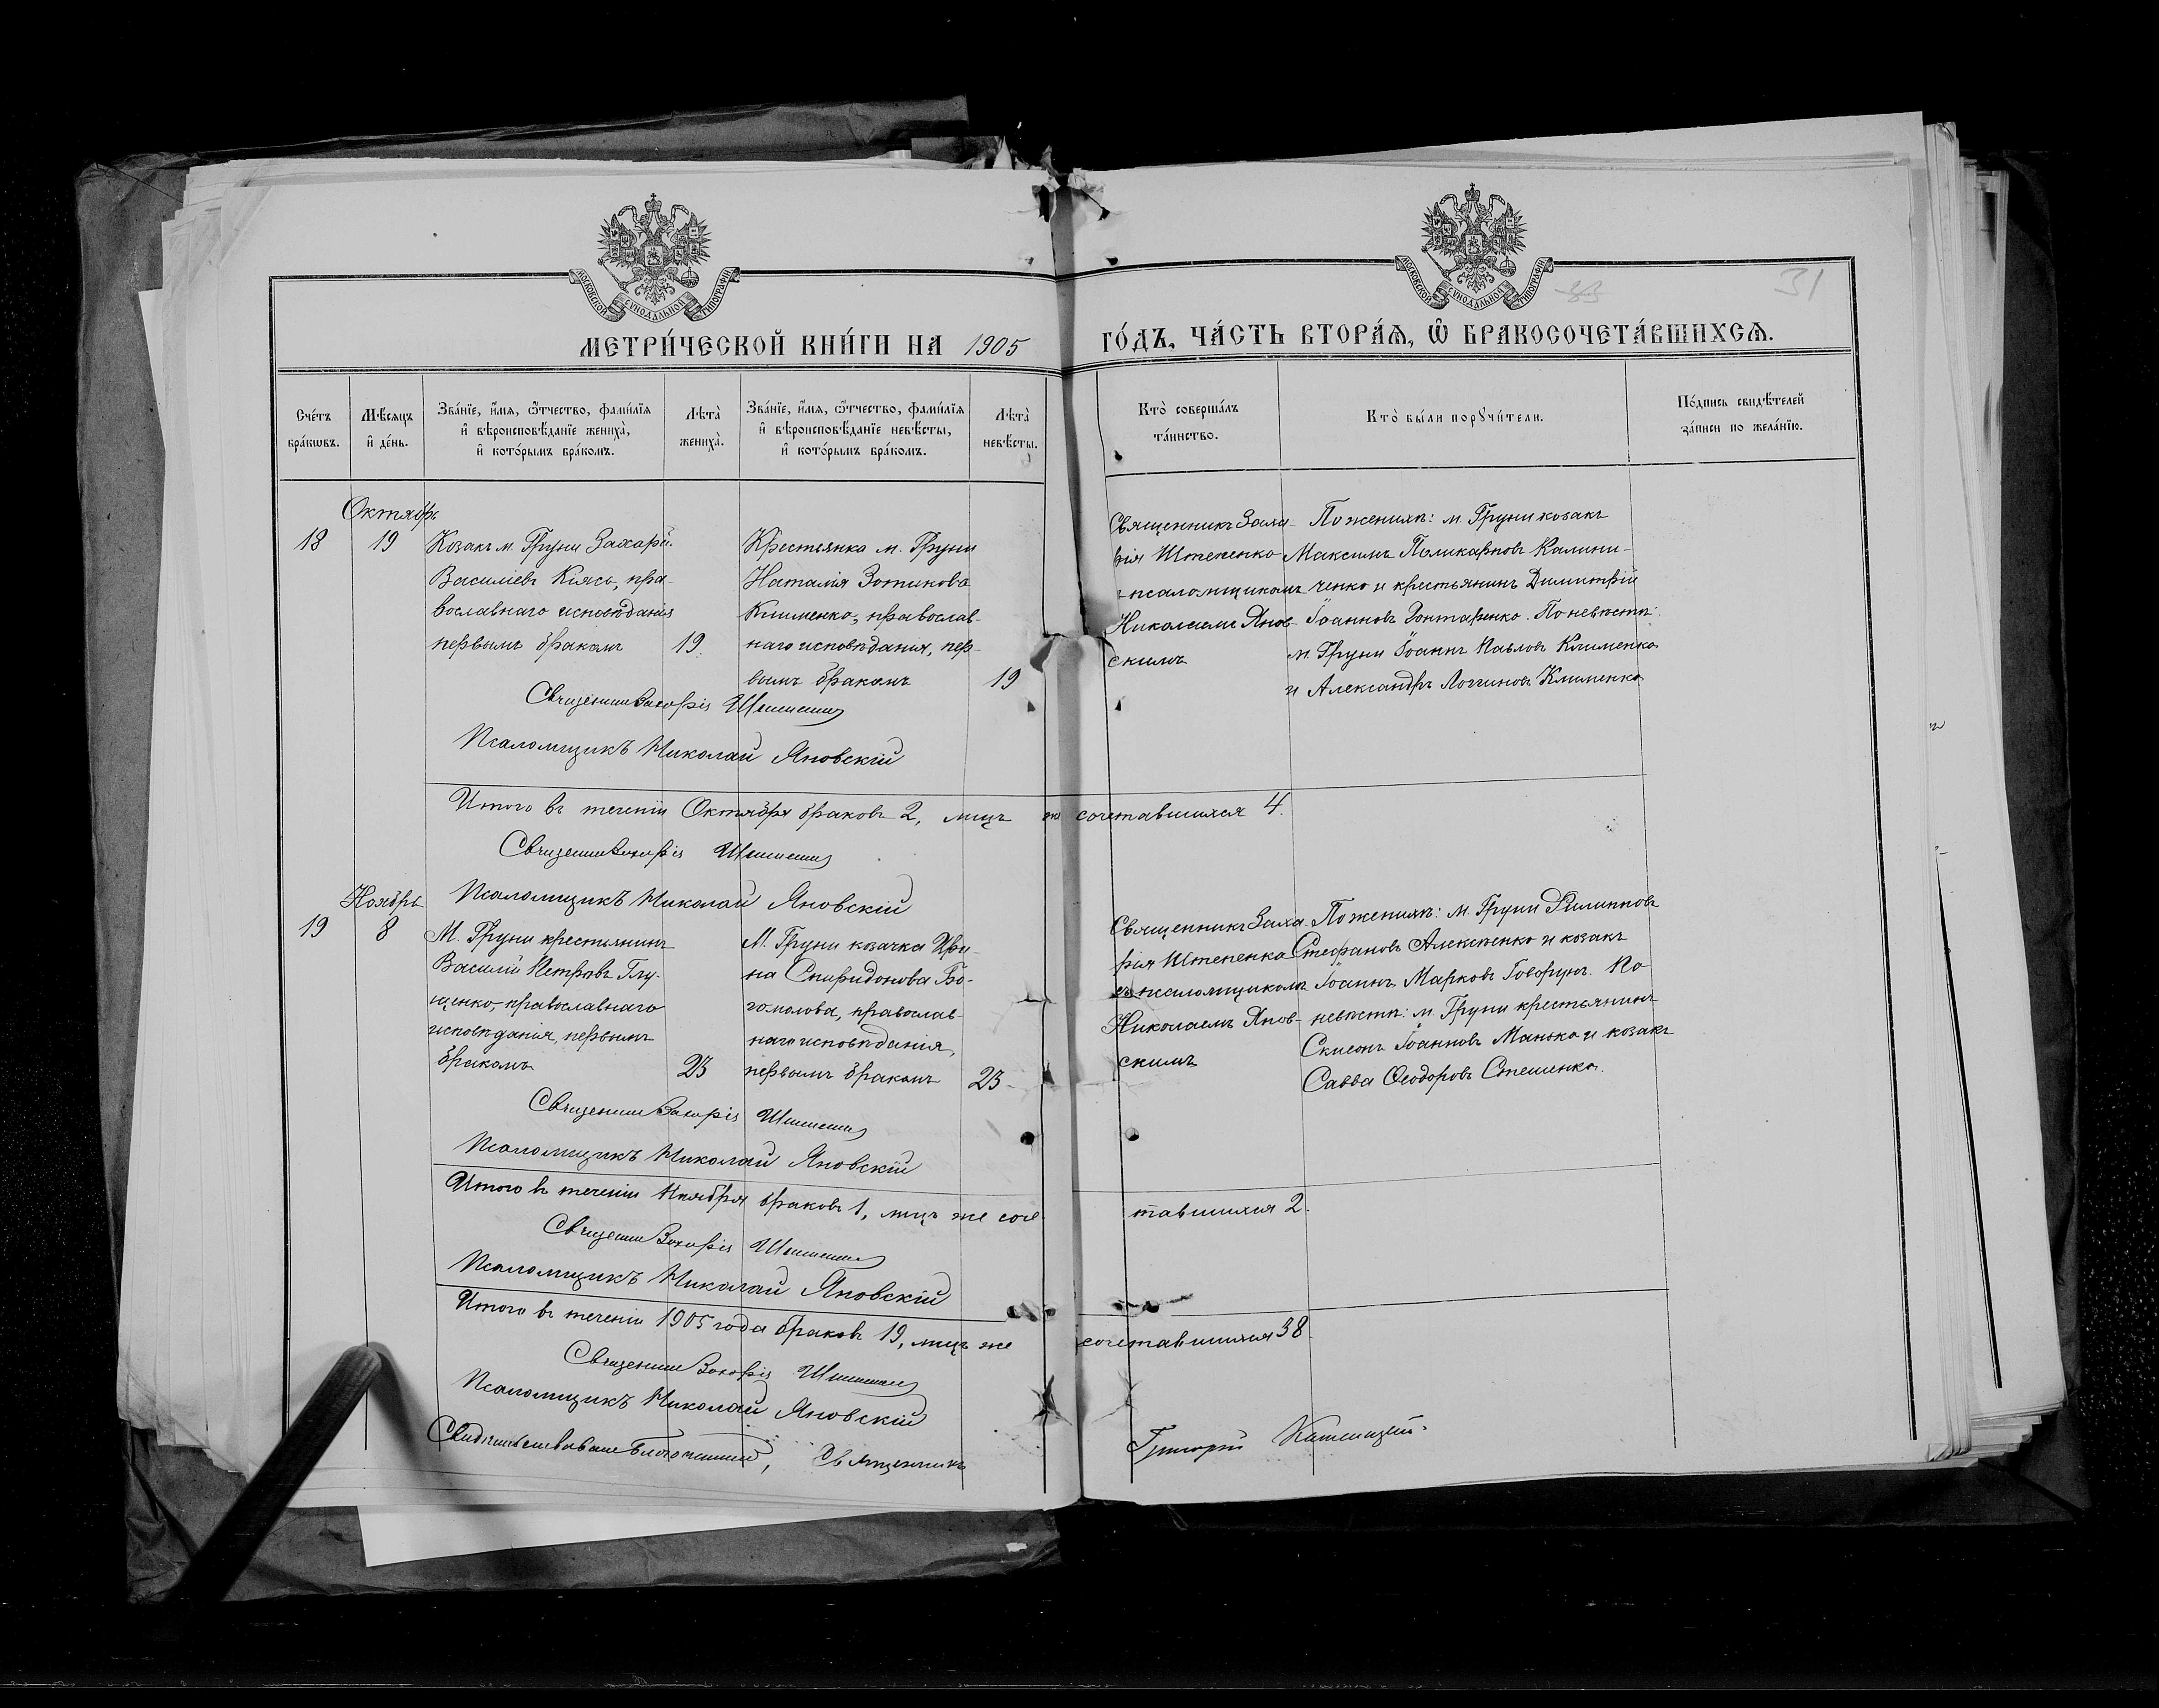 МОСКОВСКОЙ СУНОДАЛЬНОЙ ТИПОГРАФІИ
МОСКОВСКОЙ СУНОДАЛЬНОЙ ТИПОГРАФІИ
31
МЕТРИ́ЧЕСКОЙ КНИ́ГИ НА 1905 ГО́ДЪ, ЧА́СТЬ ВТОРА́Ѧ, Ѽ БРАКОСОЧЕТА́ВШИХСѦ.
Сче́тъ бра́кωвъ.
Мѣ́сяцъ и҆ де́нь.
Зва́нїе, и҆́мѧ, ѻ҆́тчество, фами́лїѧ
и҆ вѣроисповѣ́данїе жениха̀,
и҆ кото́рымъ бра́комъ.
Лѣта̀ жениха̀.
Зва́нїе, и҆́мѧ, ѻ҆́тчество, фами́лїѧ
и҆ вѣроисповѣ́данїе невѣ́сты,
и҆ кото́рымъ бра́комъ.
Лѣта̀ невѣ́сты.
Кто̀ соверша́лъ
та́инство.
Кто̀ бы́ли порꙋчи́тели.
По́дпись свидѣ́телей
за́писи по жела́нїю.
Октябрь
18
19
Козакъ м. Груни Захарій
Василіевъ Кіясь, пра-
вославнаго исповѣданія
первымъ бракомъ
19.
Крестьянка м. Груни
Наталія Зотикова
Клименко, православ-
наго исповѣданія, пер-
вымъ бракомъ
19
Священникъ Заха-
рія Штепенко
псаломщикомъ
Николаемъ Янов-
скимъ
По женихѣ: м. Груни козакъ
Максимъ Поликарповъ Калини-
ченко и крестьянинъ Димитрій
Іоанновъ Гонтаренко. По невѣстѣ:
м. Груни Іоаннъ Павловъ Клименко
и Александръ Логиновъ Клименко
Священникъ Захарія Штепенко
Псаломщикъ Николай Яновскій
Итого въ теченіи Октября браковъ 2, лицъ же сочетавшихся 4.
Священникъ Захарія Штепенко
Псаломщикъ Николай Яновскій
Ноябрь
19
8
М. Груни крестьянинъ
Василій Петровъ Глу-
щенко, православнаго
исповѣданія, первымъ
бракомъ
23
М. Груни козачка Ири-
на Спиридонова Бо-
гомолова, православ-
наго исповѣданія,
первымъ бракомъ
23
Священникъ Заха-
рія Штепенко
съ псаломщикомъ
Николаемъ Янов-
скимъ
По женихѣ: м. Груни Филипповъ
Стефановъ Алексѣенко и козакъ
Іоаннъ Марковъ Говорунъ. По
невѣстѣ: м. Груни крестьянинъ
Симеонъ Іоанновъ Манько и козакъ
Савва Ѳеодоровъ Стешенко.
Священникъ Захарія Штепенко
Псаломщикъ Николай Яновскій
Итого въ теченіи Ноября браковъ 1, лицъ же соче-тавшихся 2.
Священникъ Захарія Штепенко
Псаломщикъ Николай Яновскій
Итого въ теченіи 1905 года браковъ 19, лицъ же сочетавшихся 38.
Священникъ Захарія Штепенко
Псаломщикъ Николай Яновскій
Свидѣтельствовалъ Благочинный, Священникъ Григорій